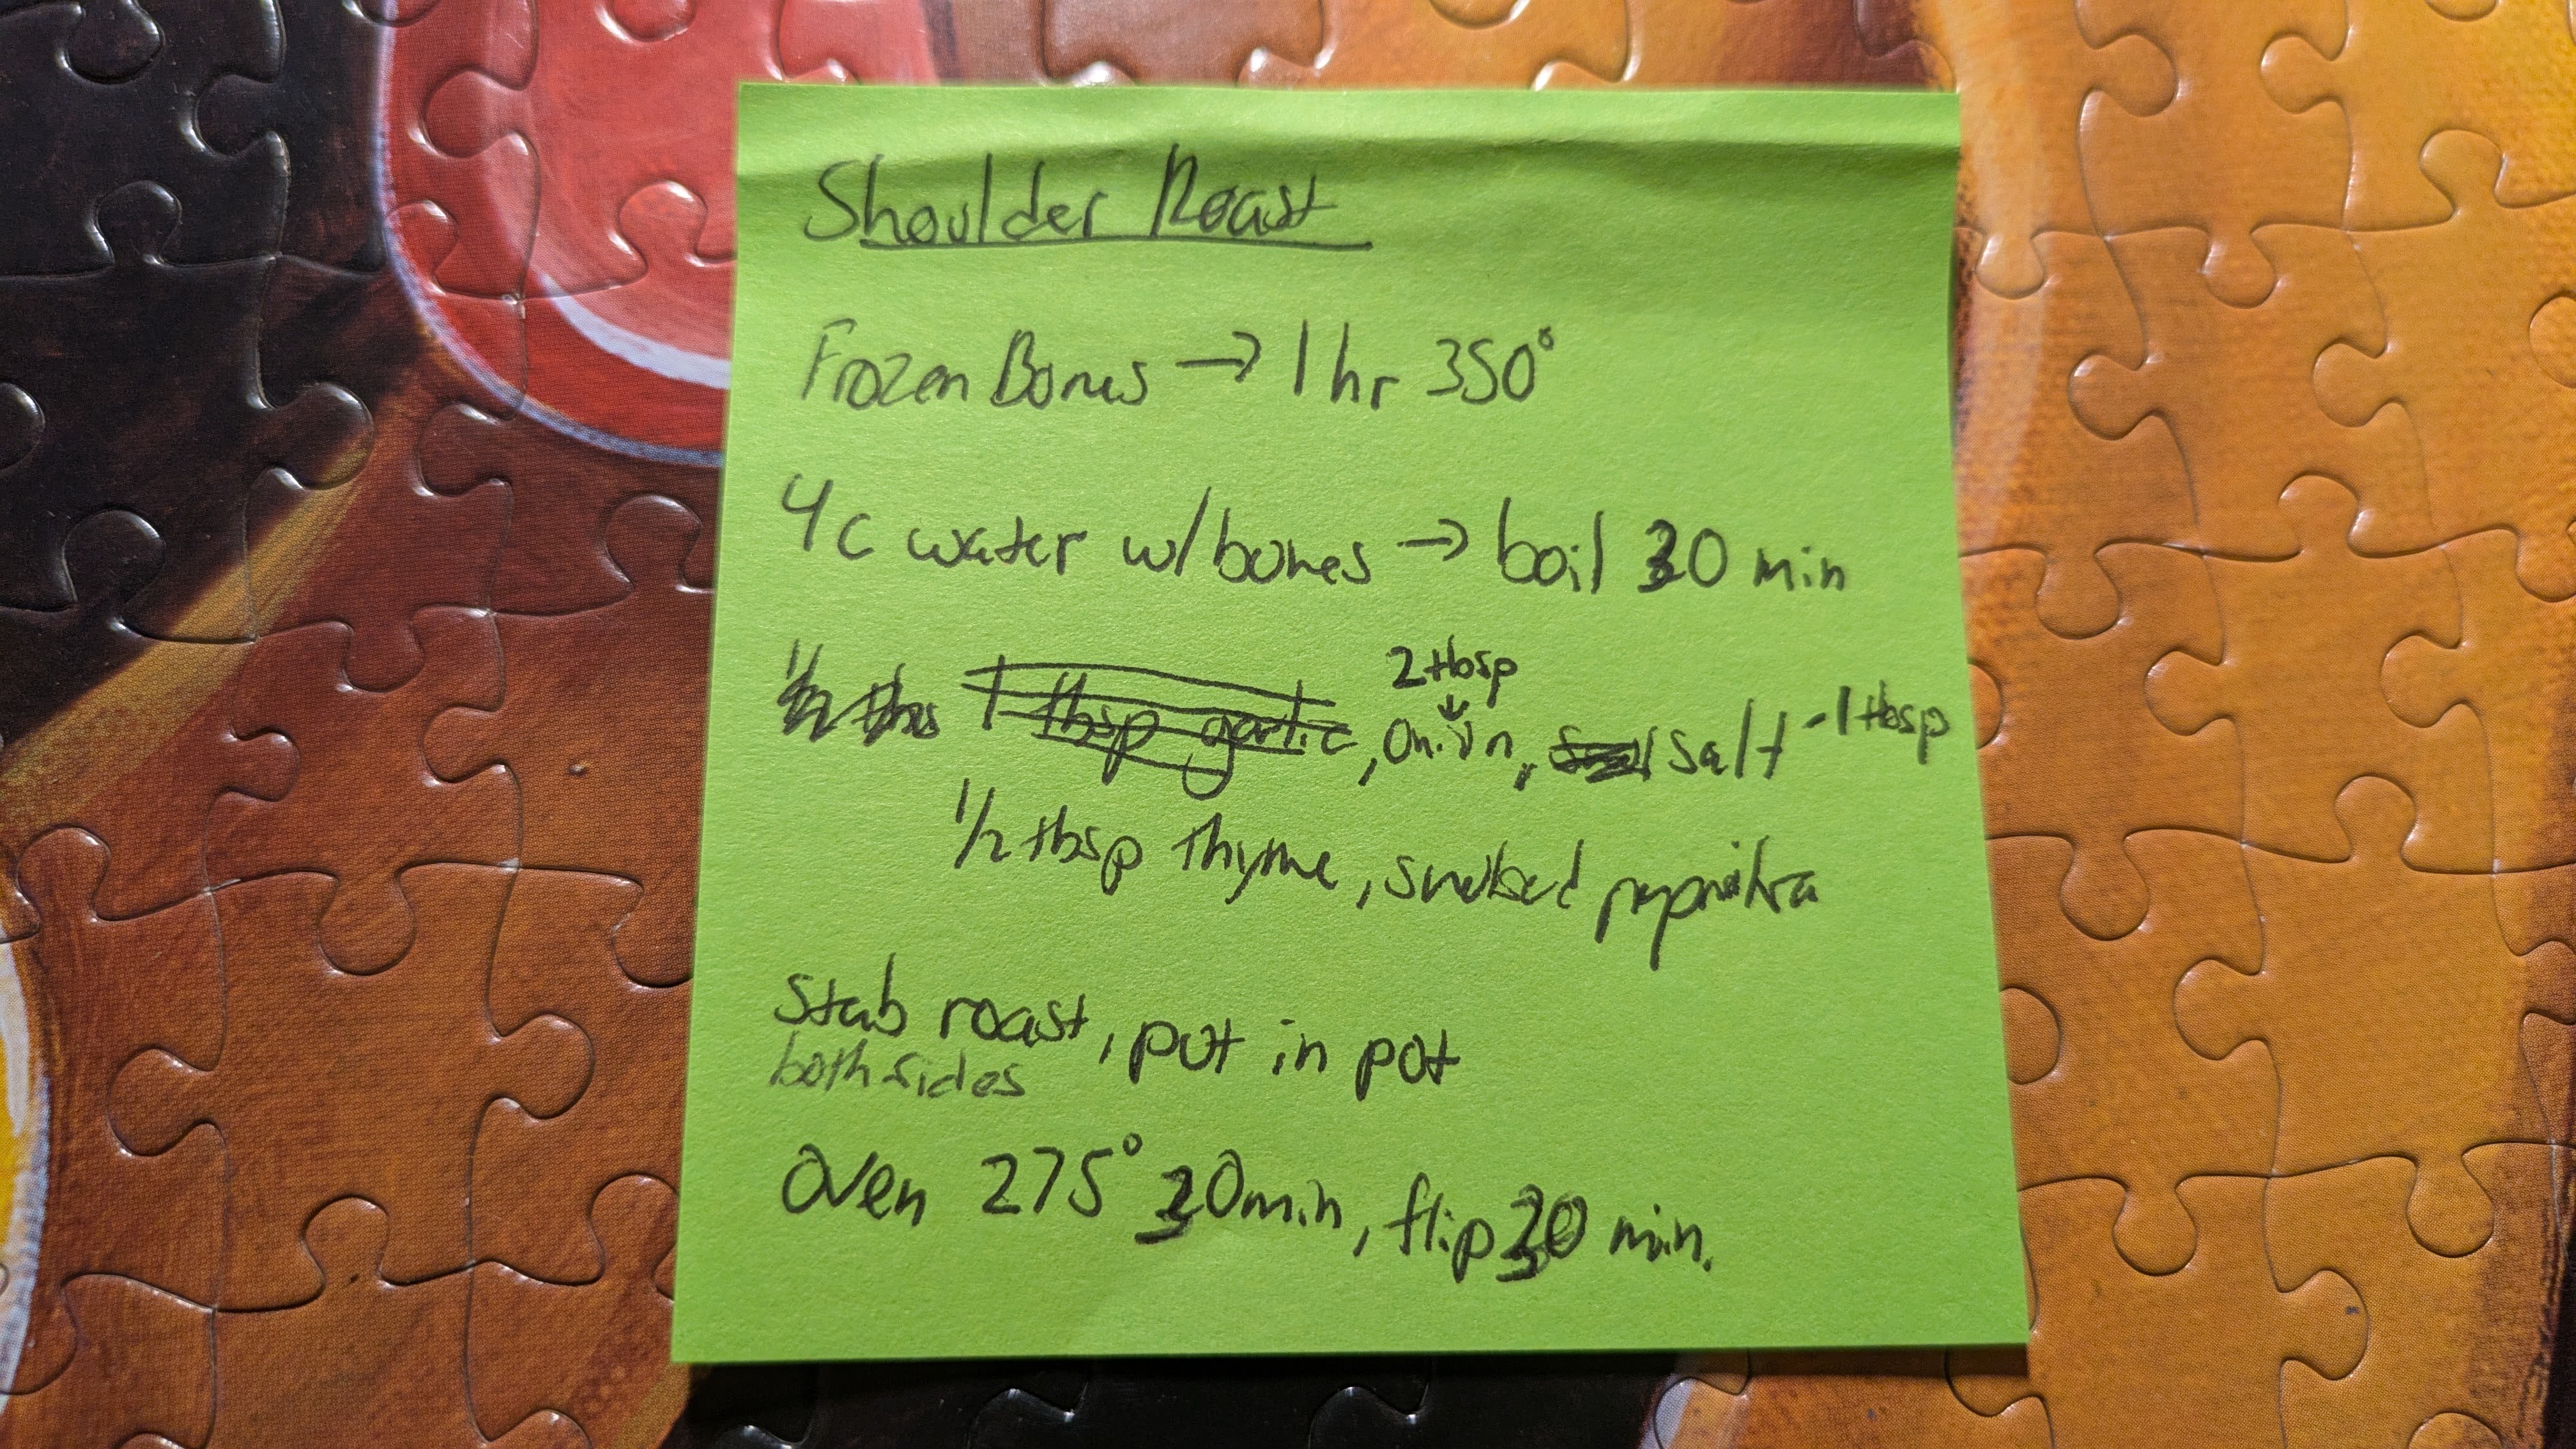 Shoulder Roast
Frozen Bones → 1 hr 350°
4c water w/bones → boil 30 min
2 tbsp
↓
1/2 tbs 1 tbsp garlic, Onion, salt -1 tbsp
1/2 tbsp thyme, smoked paprika
Stab roast, put in pot
both sides
Oven 275° 30min, flip 30 min.